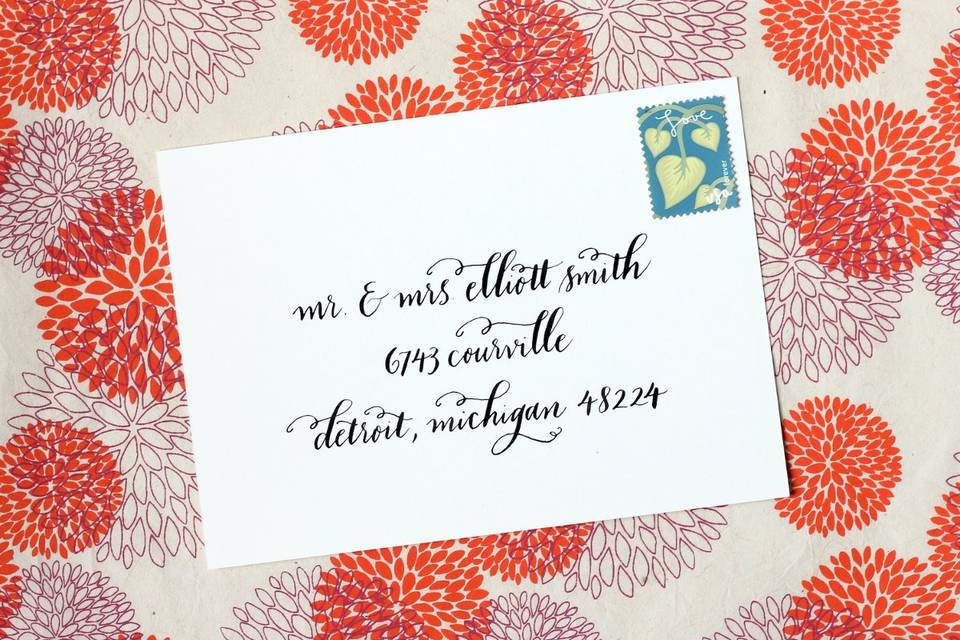 Love
forever
usa
mr. & mrs. elliott smith
6743 courville
detroit, michigan 48224